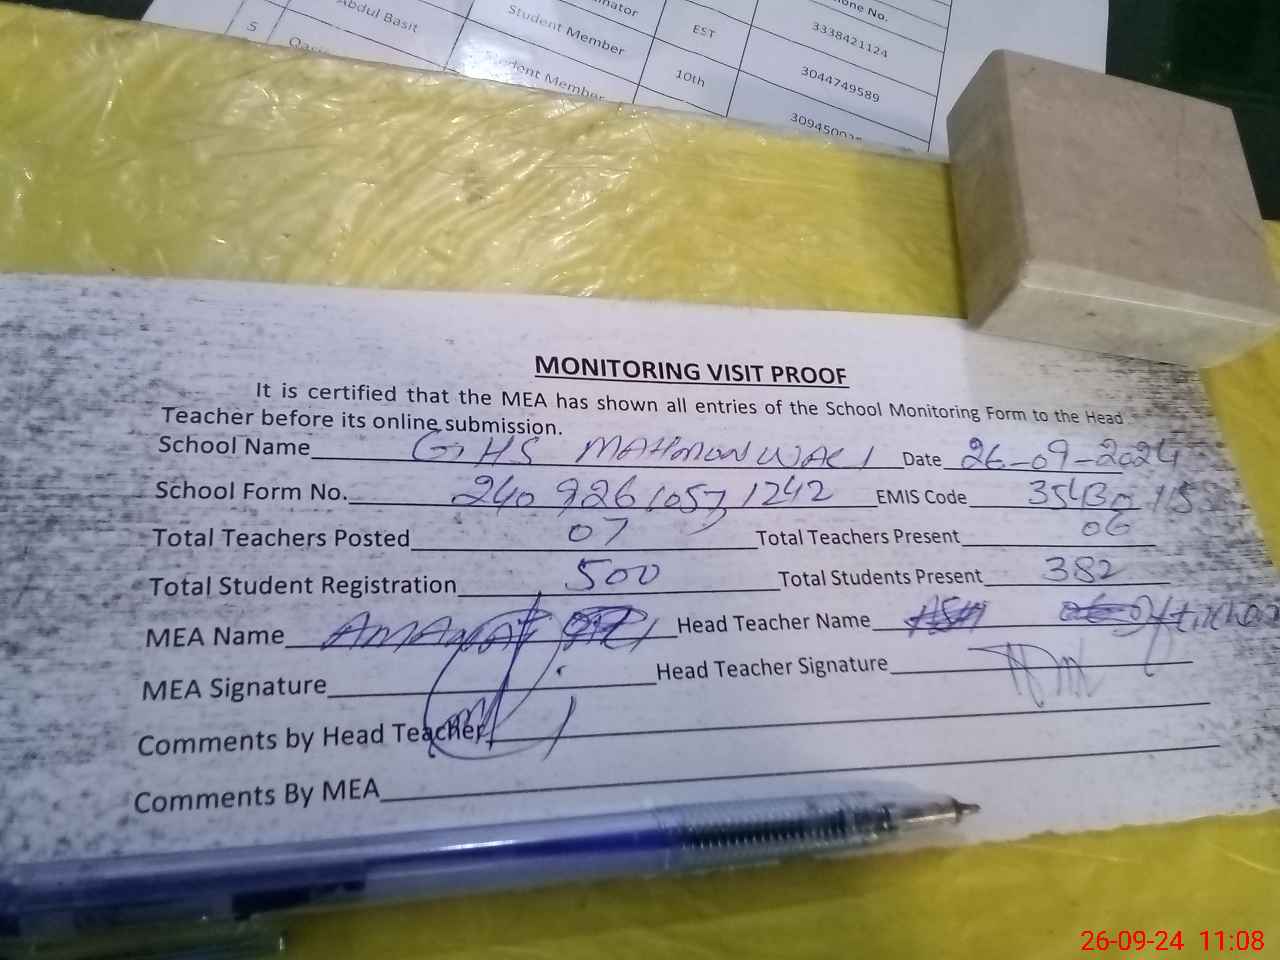 inator EST 3338421124
Abdul Basit Student Member 10th 3044749589
5 Student Member
one No.
MONITORING VISIT PROOF
It is certified that the MEA has shown all entries of the School Monitoring Form to the Head
Teacher before its online submission.
School Name GHS Date 26-09-2024
School Form No. EMIS Code
Total Teachers Posted 07 Total Teachers Present 06
Total Student Registration 500 Total Students Present 382
MEA Name Head Teacher Name
MEA Signature Head Teacher Signature
Comments by Head Teacher
Comments By MEA
26-09-24 11:08